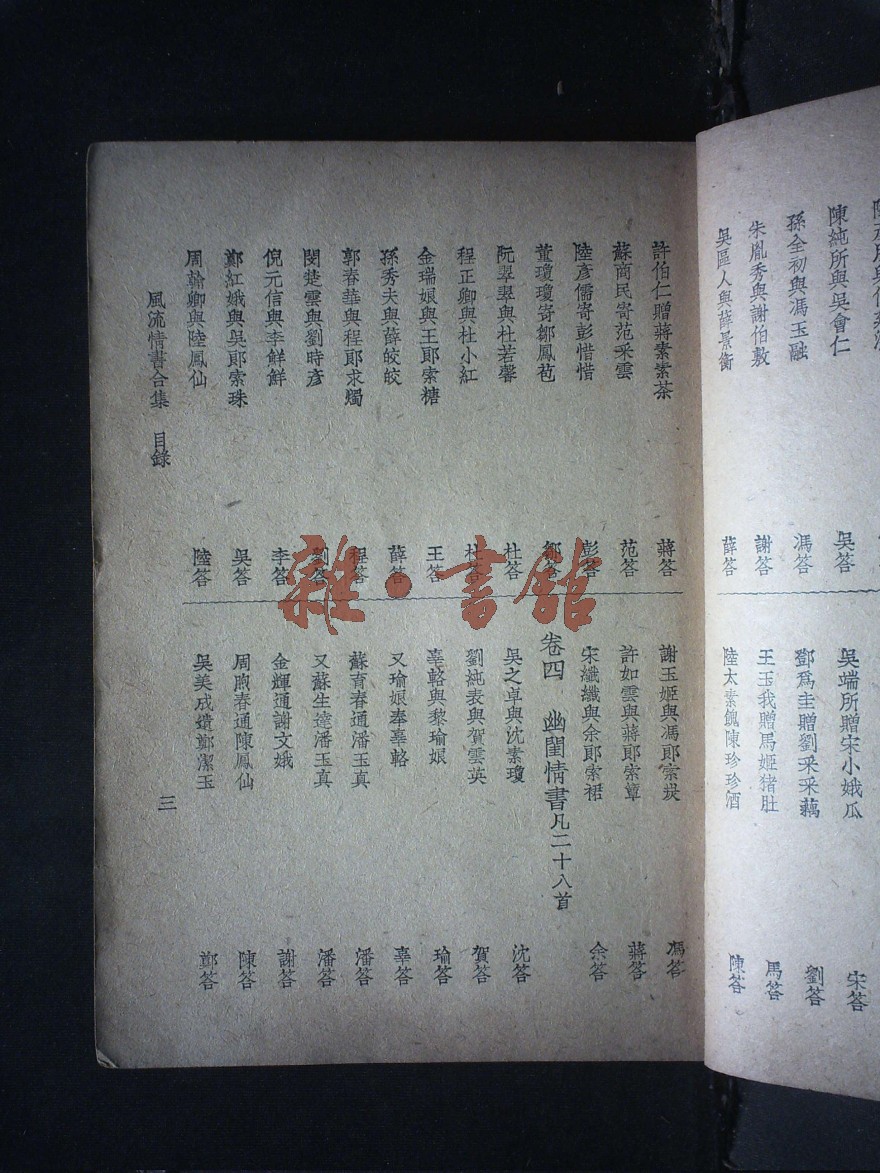 陳純所與吳會仁 吳答
孫全初與馮玉融 馮答
朱胤秀與謝伯敷 謝答
吳區人與薛景衡 薛答
宋答
吳端所贈宋小娥瓜
鄧為圭贈劉采采藕 劉答
王玉我贈馬姬猪肚 馬答
陸太素餽陳珍珍酒 陳答
許伯仁贈蔣素素茶 蔣答
蘇商民寄范采雲 范答
陸彥儒寄彭惜惜 彭答
董瓊瓊寄鄒鳳苞 鄒答
阮翠翠與杜若馨 杜答
程正卿與杜小紅 杜答
金瑞娘與王郞索糖 王答
孫秀夫與薛皎皎 薛答
郭春華與程郞求燭 程答
閔楚雲與劉時彥 劉答
倪元信與李鮮鮮 李答
鄭紅娥與吳郞索珠 吳答
周翰卿與陸鳳仙 陸答
謝玉姬與馮郞索炭 馮答
許如雲與蔣郞索簟 蔣答
宋纖纖與余郞索裙 余答
卷四 幽閨情書凡二十八首
吳之卓與沈素瓊 沈答
劉純表與賀雲英 賀答
辜輅與黎瑜娘 瑜答
又瑜娘奉辜輅 辜答
蘇育春通潘玉真 潘答
又蘇生達潘玉真 潘答
金輝通謝文娥 謝答
周煦春通陳鳳仙 陳答
吳美成遺鄭潔玉 鄭答
風流情書合集 目錄
三
雜·書館